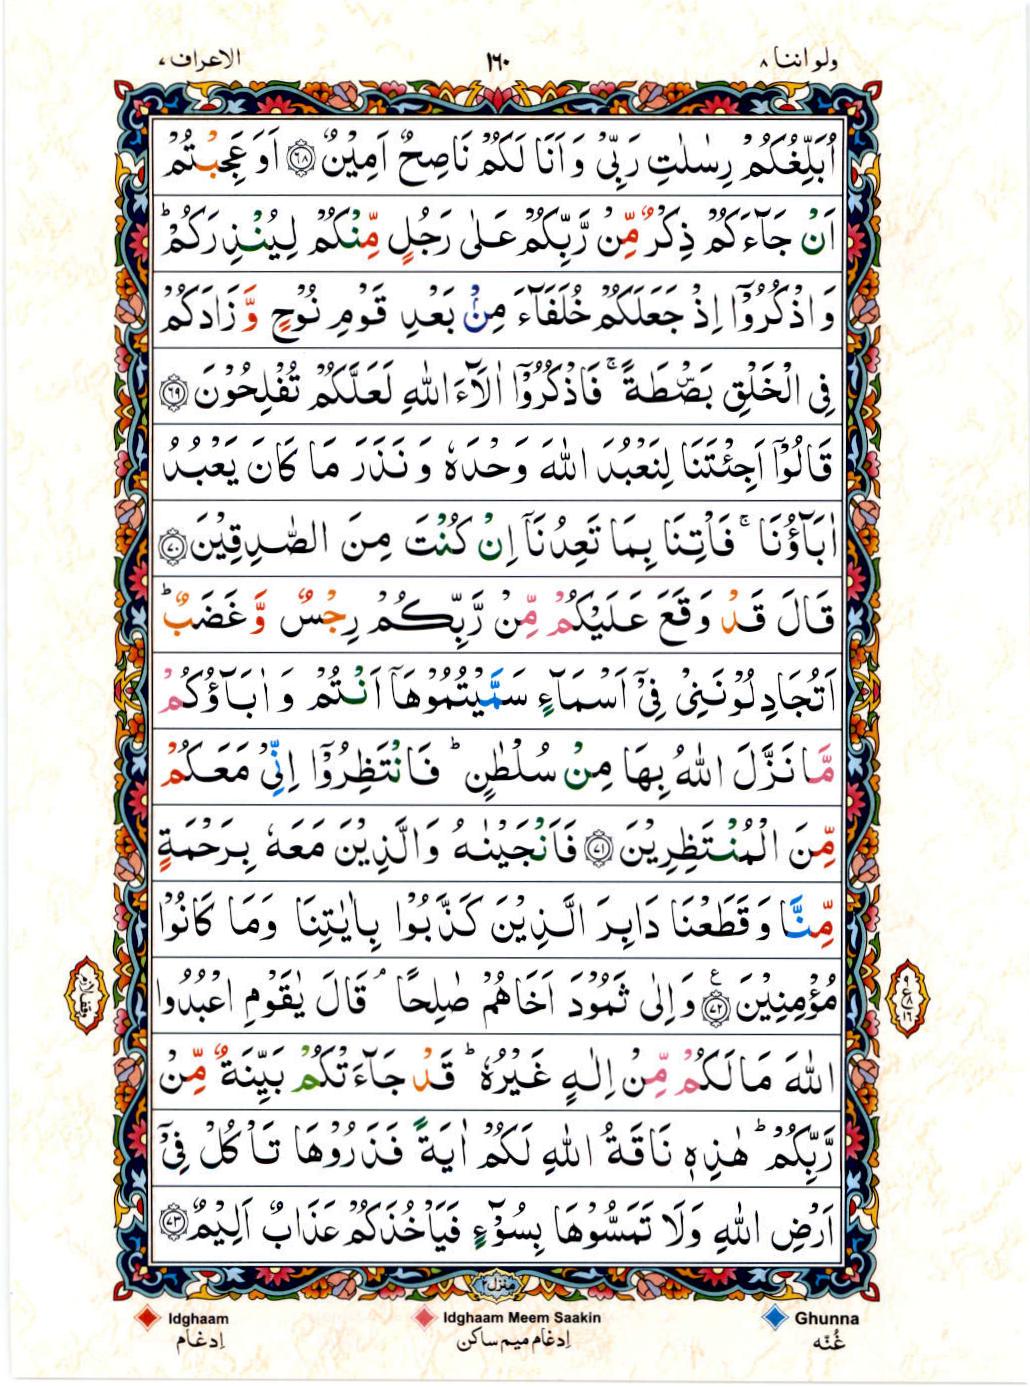 ولو اننا ٨
١٦٠
الاعراف ٧
اُبَلِّغُكُمْ رِسٰلٰتِ رَبِّیْ وَ اَنَا لَكُمْ نَاصِحٌ اَمِیْنٌ ﴿٦٨﴾ اَوَ عَجِبْتُمْ
اَنْ جَآءَكُمْ ذِكْرٌ مِّنْ رَّبِّكُمْ عَلٰی رَجُلٍ مِّنْكُمْ لِیُنْذِرَكُمْ ؕ
وَ اذْكُرُوْۤا اِذْ جَعَلَكُمْ خُلَفَآءَ مِنْۢ بَعْدِ قَوْمِ نُوْحٍ وَّ زَادَكُمْ
فِی الْخَلْقِ بَصْۜطَةً ۚ فَاذْكُرُوْۤا اٰلَآءَ اللّٰهِ لَعَلَّكُمْ تُفْلِحُوْنَ ﴿٦٩﴾
قَالُوْۤا اَجِئْتَنَا لِنَعْبُدَ اللّٰهَ وَحْدَهٗ وَ نَذَرَ مَا كَانَ یَعْبُدُ
اٰبَآؤُنَا ۚ فَاْتِنَا بِمَا تَعِدُنَاۤ اِنْ كُنْتَ مِنَ الصّٰدِقِیْنَ ﴿٧٠﴾
قَالَ قَدْ وَقَعَ عَلَیْكُمْ مِّنْ رَّبِّكُمْ رِجْسٌ وَّ غَضَبٌ ؕ
اَتُجَادِلُوْنَنِیْ فِیْۤ اَسْمَآءٍ سَمَّیْتُمُوْهَاۤ اَنْتُمْ وَ اٰبَآؤُكُمْ
مَّا نَزَّلَ اللّٰهُ بِهَا مِنْ سُلْطٰنٍ ؕ فَانْتَظِرُوْۤا اِنِّیْ مَعَكُمْ
مِّنَ الْمُنْتَظِرِیْنَ ﴿٧١﴾ فَاَنْجَیْنٰهُ وَ الَّذِیْنَ مَعَهٗ بِرَحْمَةٍ
مِّنَّا وَ قَطَعْنَا دَابِرَ الَّذِیْنَ كَذَّبُوْا بِاٰیٰتِنَا وَمَا كَانُوْا
مُؤْمِنِیْنَ ﴿٧٢﴾ ع وَ اِلٰی ثَمُوْدَ اَخَاهُمْ صٰلِحًا ۘ قَالَ یٰقَوْمِ اعْبُدُوا
اللّٰهَ مَا لَكُمْ مِّنْ اِلٰهٍ غَیْرُهٗ ؕ قَدْ جَآءَتْكُمْ بَیِّنَةٌ مِّنْ
رَّبِّكُمْ ؕ هٰذِهٖ نَاقَةُ اللّٰهِ لَكُمْ اٰیَةً فَذَرُوْهَا تَاْكُلْ فِیْۤ
اَرْضِ اللّٰهِ وَلَا تَمَسُّوْهَا بِسُوْٓءٍ فَیَاْخُذَكُمْ عَذَابٌ اَلِیْمٌ ﴿٧٣﴾
Idghaam
Idghaam Meem Saakin
Ghunna
اِدغام
اِدغام میم ساکن
غُنّه